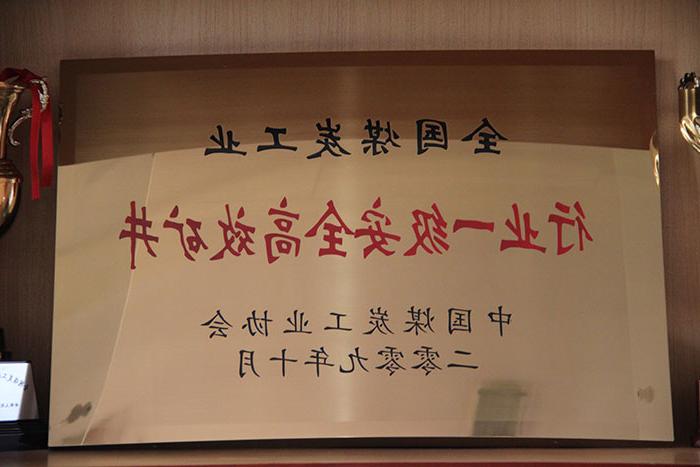 全国煤炭工业
行业一级安全高效矿井
中国煤炭工业协会
二零零九年十月